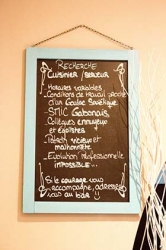 Recherche
Cuisinier / Serveur
- Horaires variables
- Conditions de travail proche
d'un Goulag Soviétique
- SMIC Gabonais
- Collègues ennuyeux
et égoïstes
- Patron vicieux et
malhonnête
- Evolution Professionnelle
impossible ...
Si le courage vous
accompagne, adressez
vous au bar !!